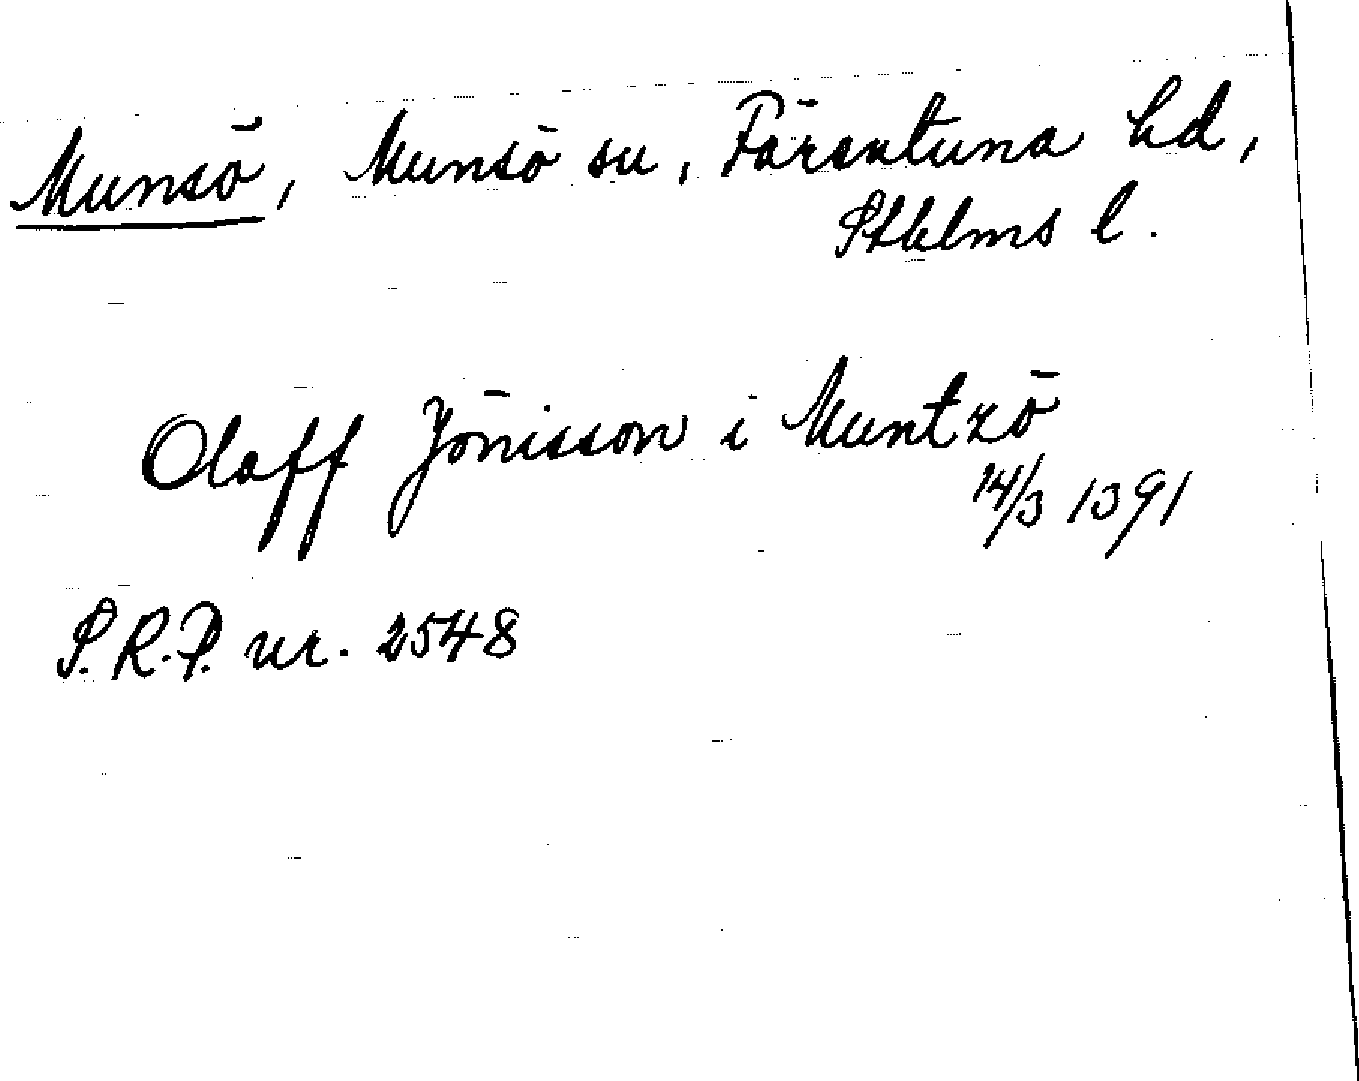 Munsö, Munsö sn, Färentuna hd,
Sthlms l.
Olaff Jönisson i Muntzö
14/3 1391
S.R.P. nr. 2548